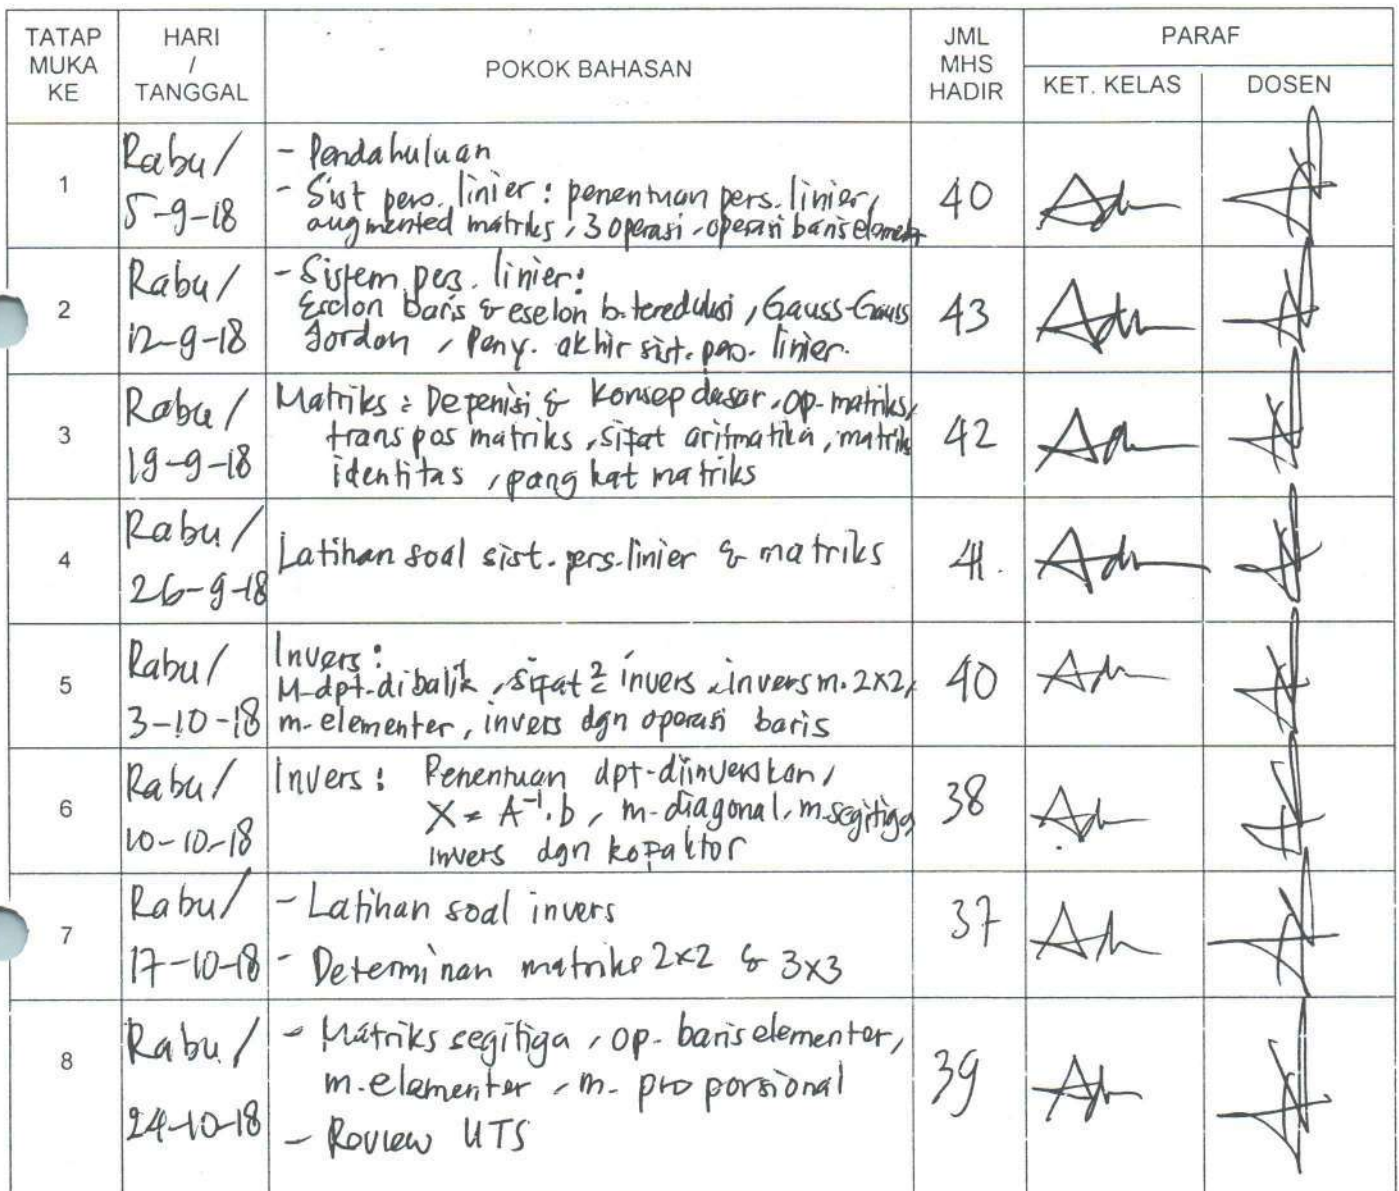 TATAP MUKA KE
HARI / TANGGAL
POKOK BAHASAN
JML MHS HADIR
PARAF
KET. KELAS
DOSEN
1
Rabu /
5-9-18
- Pendahuluan
- Sist pers. linier : penentuan pers. linier,
augmented matriks, 3 operasi, operasi baris element
40
2
Rabu /
12-9-18
- Sistem pers. linier:
Eselon baris & eselon b. tereduksi, Gauss-Gauss
Jordon, Peny. akhir sist. pers. linier.
43
3
Rabu /
19-9-18
Matriks : Depenisi & Konsep dasar, op-matriks,
transpos matriks, sifat aritmatika, matriks
identitas, pangkat matriks
42
4
Rabu /
26-9-18
Latihan soal sist. pers. linier & matriks
41.
5
Rabu /
3-10-18
Invers :
M-dpt-dibalik, sifat² invers, invers m. 2x2,
m-elementer, invers dgn operasi baris
40
6
Rabu /
10-10-18
Invers : Penentuan dpt-diinverskan,
X = A⁻¹.b, m-diagonal, m.segitiga,
invers dgn kofaktor
38
7
Rabu /
17-10-18
- Latihan soal invers
- Determinan matriks 2x2 & 3x3
37
8
Rabu /
24-10-18
- Matriks segitiga, op. baris elementer,
m. elementer, m. proporsional
- Review UTS
39